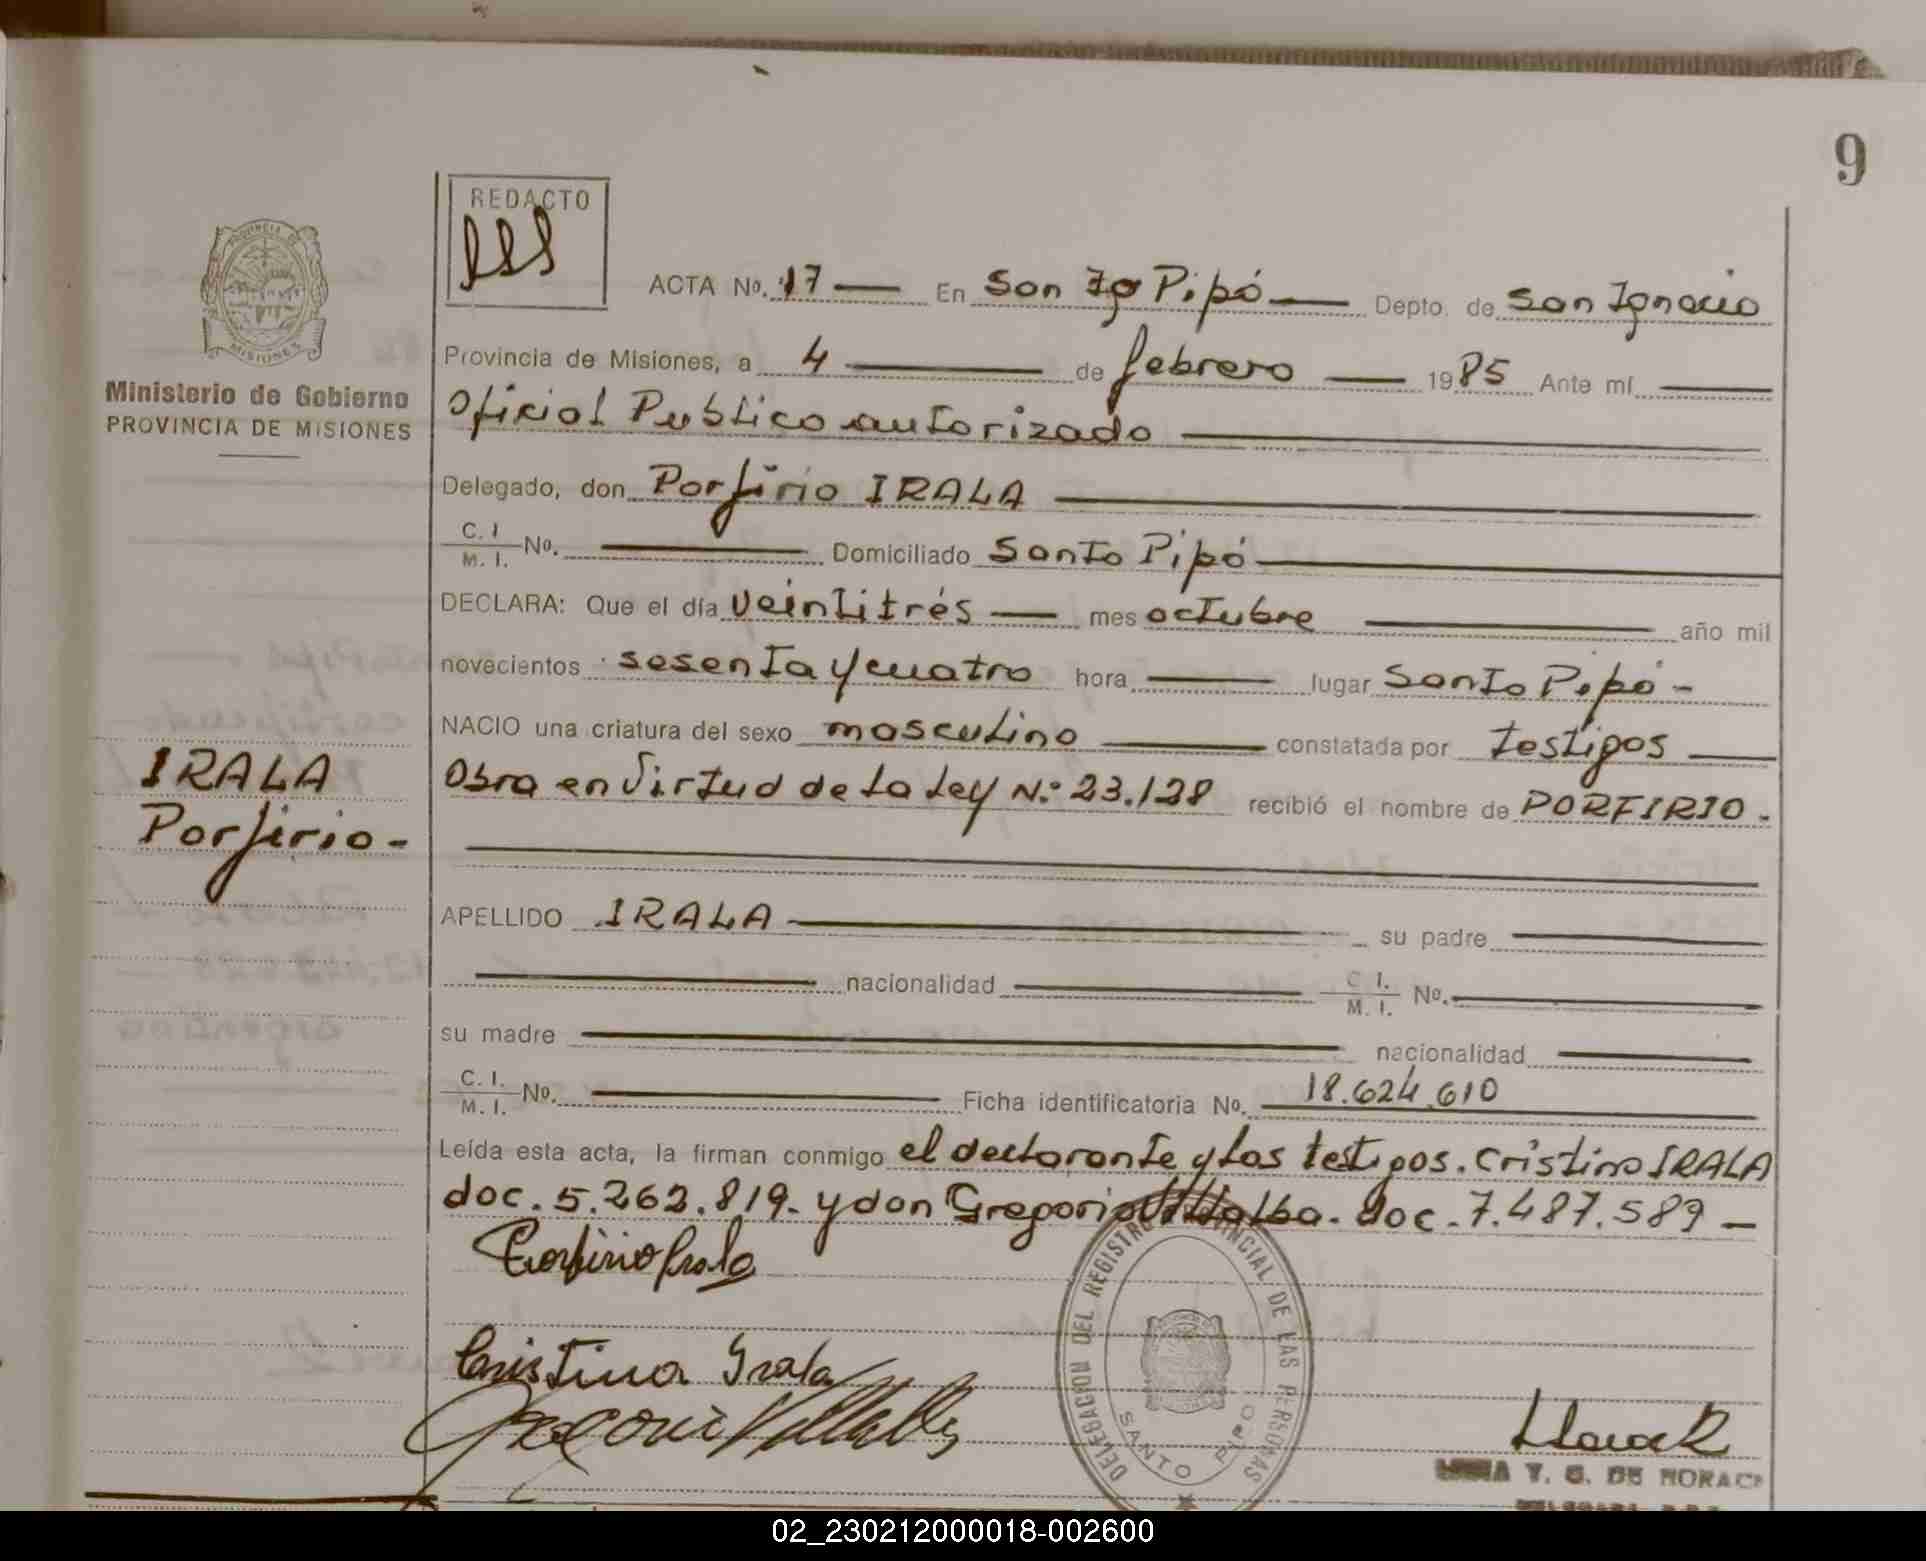 9
REDACTO
PROVINCIA DE
MISIONES
Ministerio de Gobierno
PROVINCIA DE MISIONES
ACTA No. 17 — En Son To Pipó — Depto. de San Ignacio
Provincia de Misiones, a 4 — de febrero — 1985 Ante mí —
Oficial Publico autorizado —
Delegado, don Porfirio IRALA —
C. I. / M. I. No. — Domiciliado Santo Pipó —
DECLARA: Que el día veintitrés — mes octubre — año mil
novecientos sesenta y cuatro hora — lugar Santo Pipó -
NACIO una criatura del sexo masculino — constatada por testigos —
Obra en Virtud de La Ley N.º 23.128 recibió el nombre de PORFIRIO.
IRALA
Porfirio -
APELLIDO IRALA — su padre —
— nacionalidad — C. I. / M. I. No. —
su madre — nacionalidad —
C. I. / M. I. No. — Ficha identificatoria No. 18.624.610
Leída esta acta, la firman conmigo el declarante y los testigos. Cristino IRALA
doc. 5.262.819. y don Gregorio Villalba. doc. 7.487.589 —
Porfirio Irala
Cristino Irala
Gregorio Villalba
DELEGACION DEL REGISTRO PROVINCIAL DE LAS PERSONAS
SANTO PIPO
T. G. DE
02_230212000018-002600